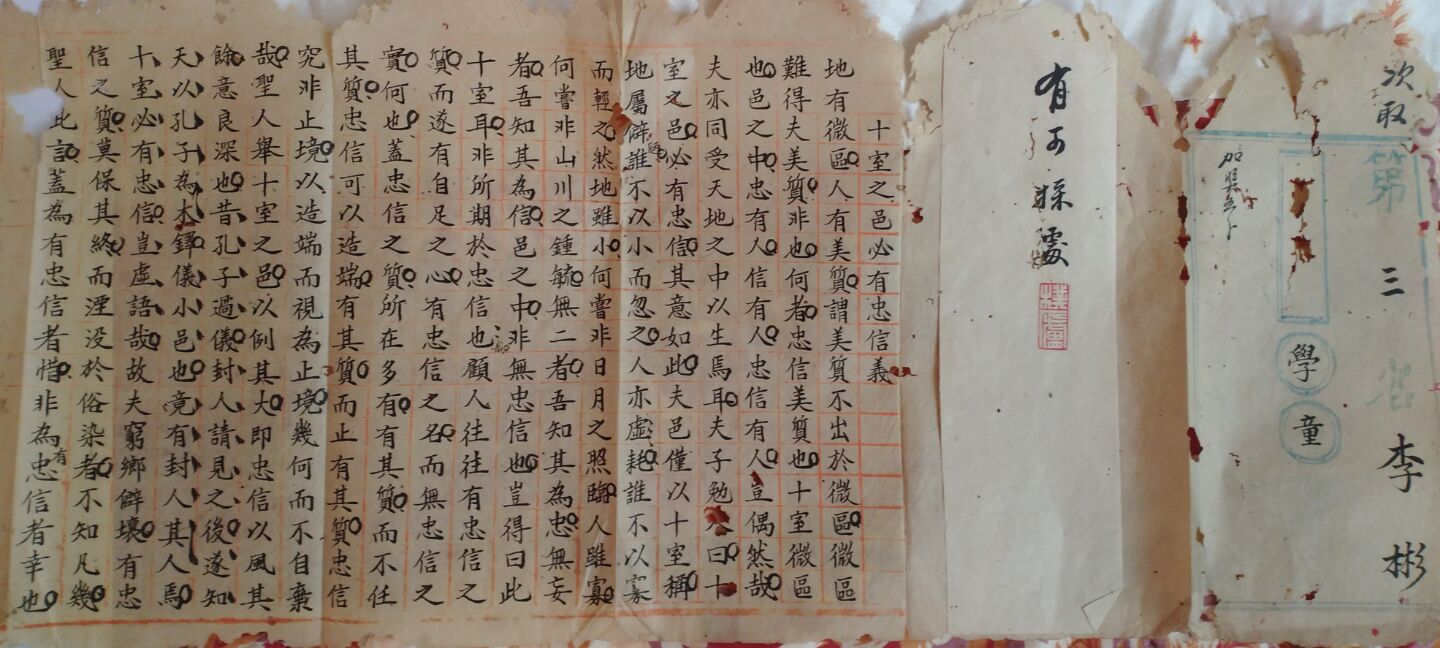 次取
第三名
學童
李彬
有可採處
十室之邑必有忠信義
地有微區人有美質謂美質不出於微區微區
難得夫美質非也何者忠信美質也十室微區
也邑之中忠有人信有人忠信有人豈偶然哉
夫亦同受天地之中以生焉耳夫子勉人曰十
室之邑必有忠信其意如此夫邑僅以十室稱
地屬僻陋誰不以小而忽之人亦虛耗誰不以寡
而輕之然地雖小何嘗非日月之照臨人雖寡
何嘗非山川之鍾毓無二者吾知其為忠無妄
者吾知其為信邑之中非無忠信也豈得曰此
十室耳非所期於忠信也顧人往往有忠信之
質而遂有自足之心有忠信之名而無忠信之
實何也蓋忠信之質所在多有有其質而不任
其質忠信可以造端有其質而止有其質忠信
究非止境以造端而視為止境幾何而不自棄
哉聖人舉十室之邑以例其大即忠信以風其
餘意良深也昔孔子過儀封人請見之後遂知
天以孔子為木鐸儀小邑也竟有封人其人焉
十室必有忠信豈虛語哉故夫窮鄉僻壤有忠
信之質莫保其終而湮没於俗染者不知凡幾
聖人此言蓋為有忠信者惜非為有忠信者幸也